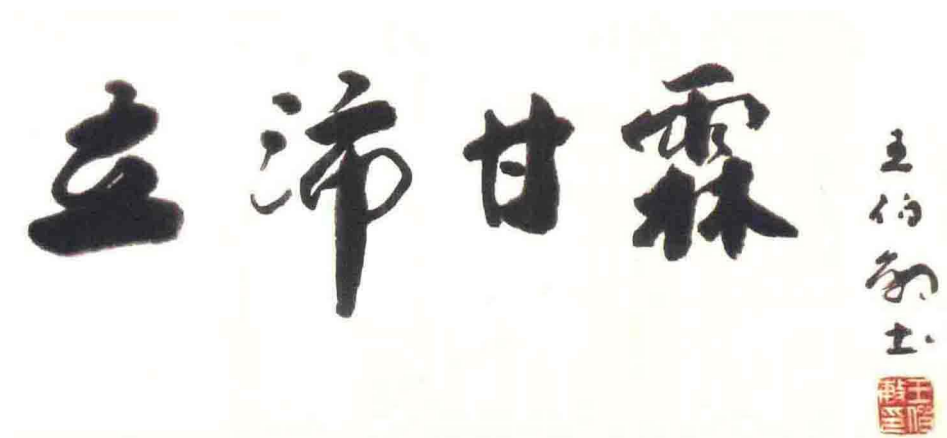 立沛甘霖
王伯敏书
王伯敏印